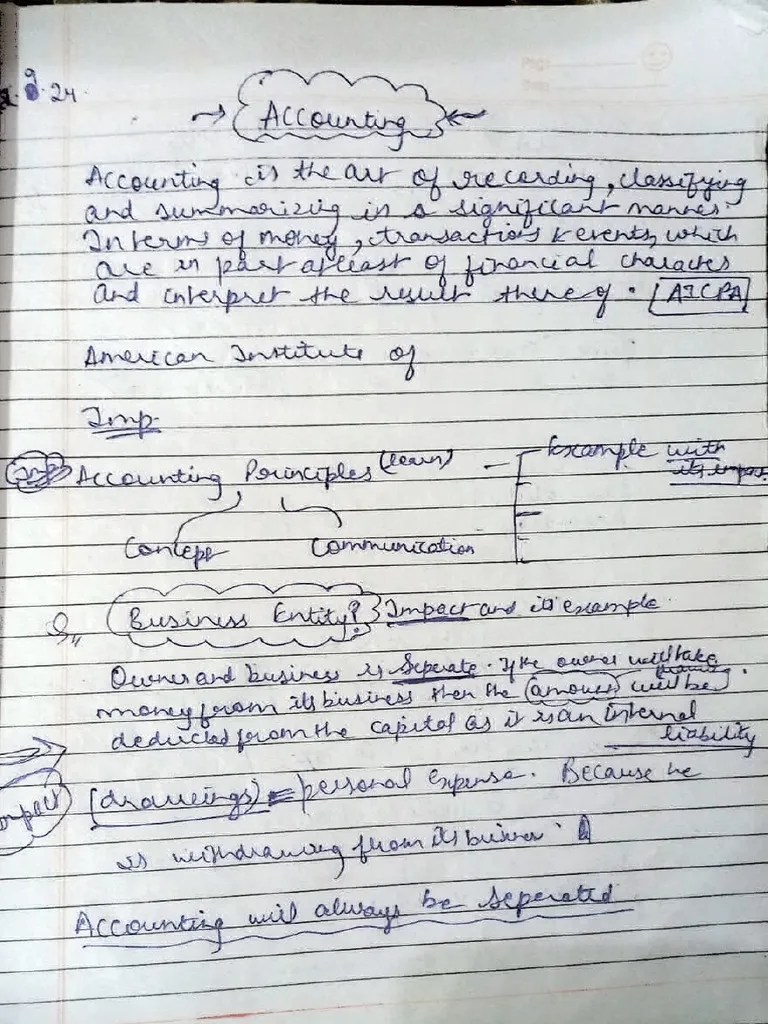 9.24
→ Accounting ←
Accounting is the art of recording, classifying
and summarizing in a significant manner
In terms of money, transactions & events, which
are in part atleast of financial character
and interpret the result there of. [AICPA]
American Institute of
Imp.
Imp Accounting Principles (learn) - Example with
its impact
Concept Communication
Q,, Business Entity? Impact and its example.
Owner and business is Seperate. If the owner will take
money from its business then the amount will be
deducted from the capital as it is an internal
liability
Impact (drawings) = personal expense. Because he
is withdrawing from its business.
Accounting will always be seperated